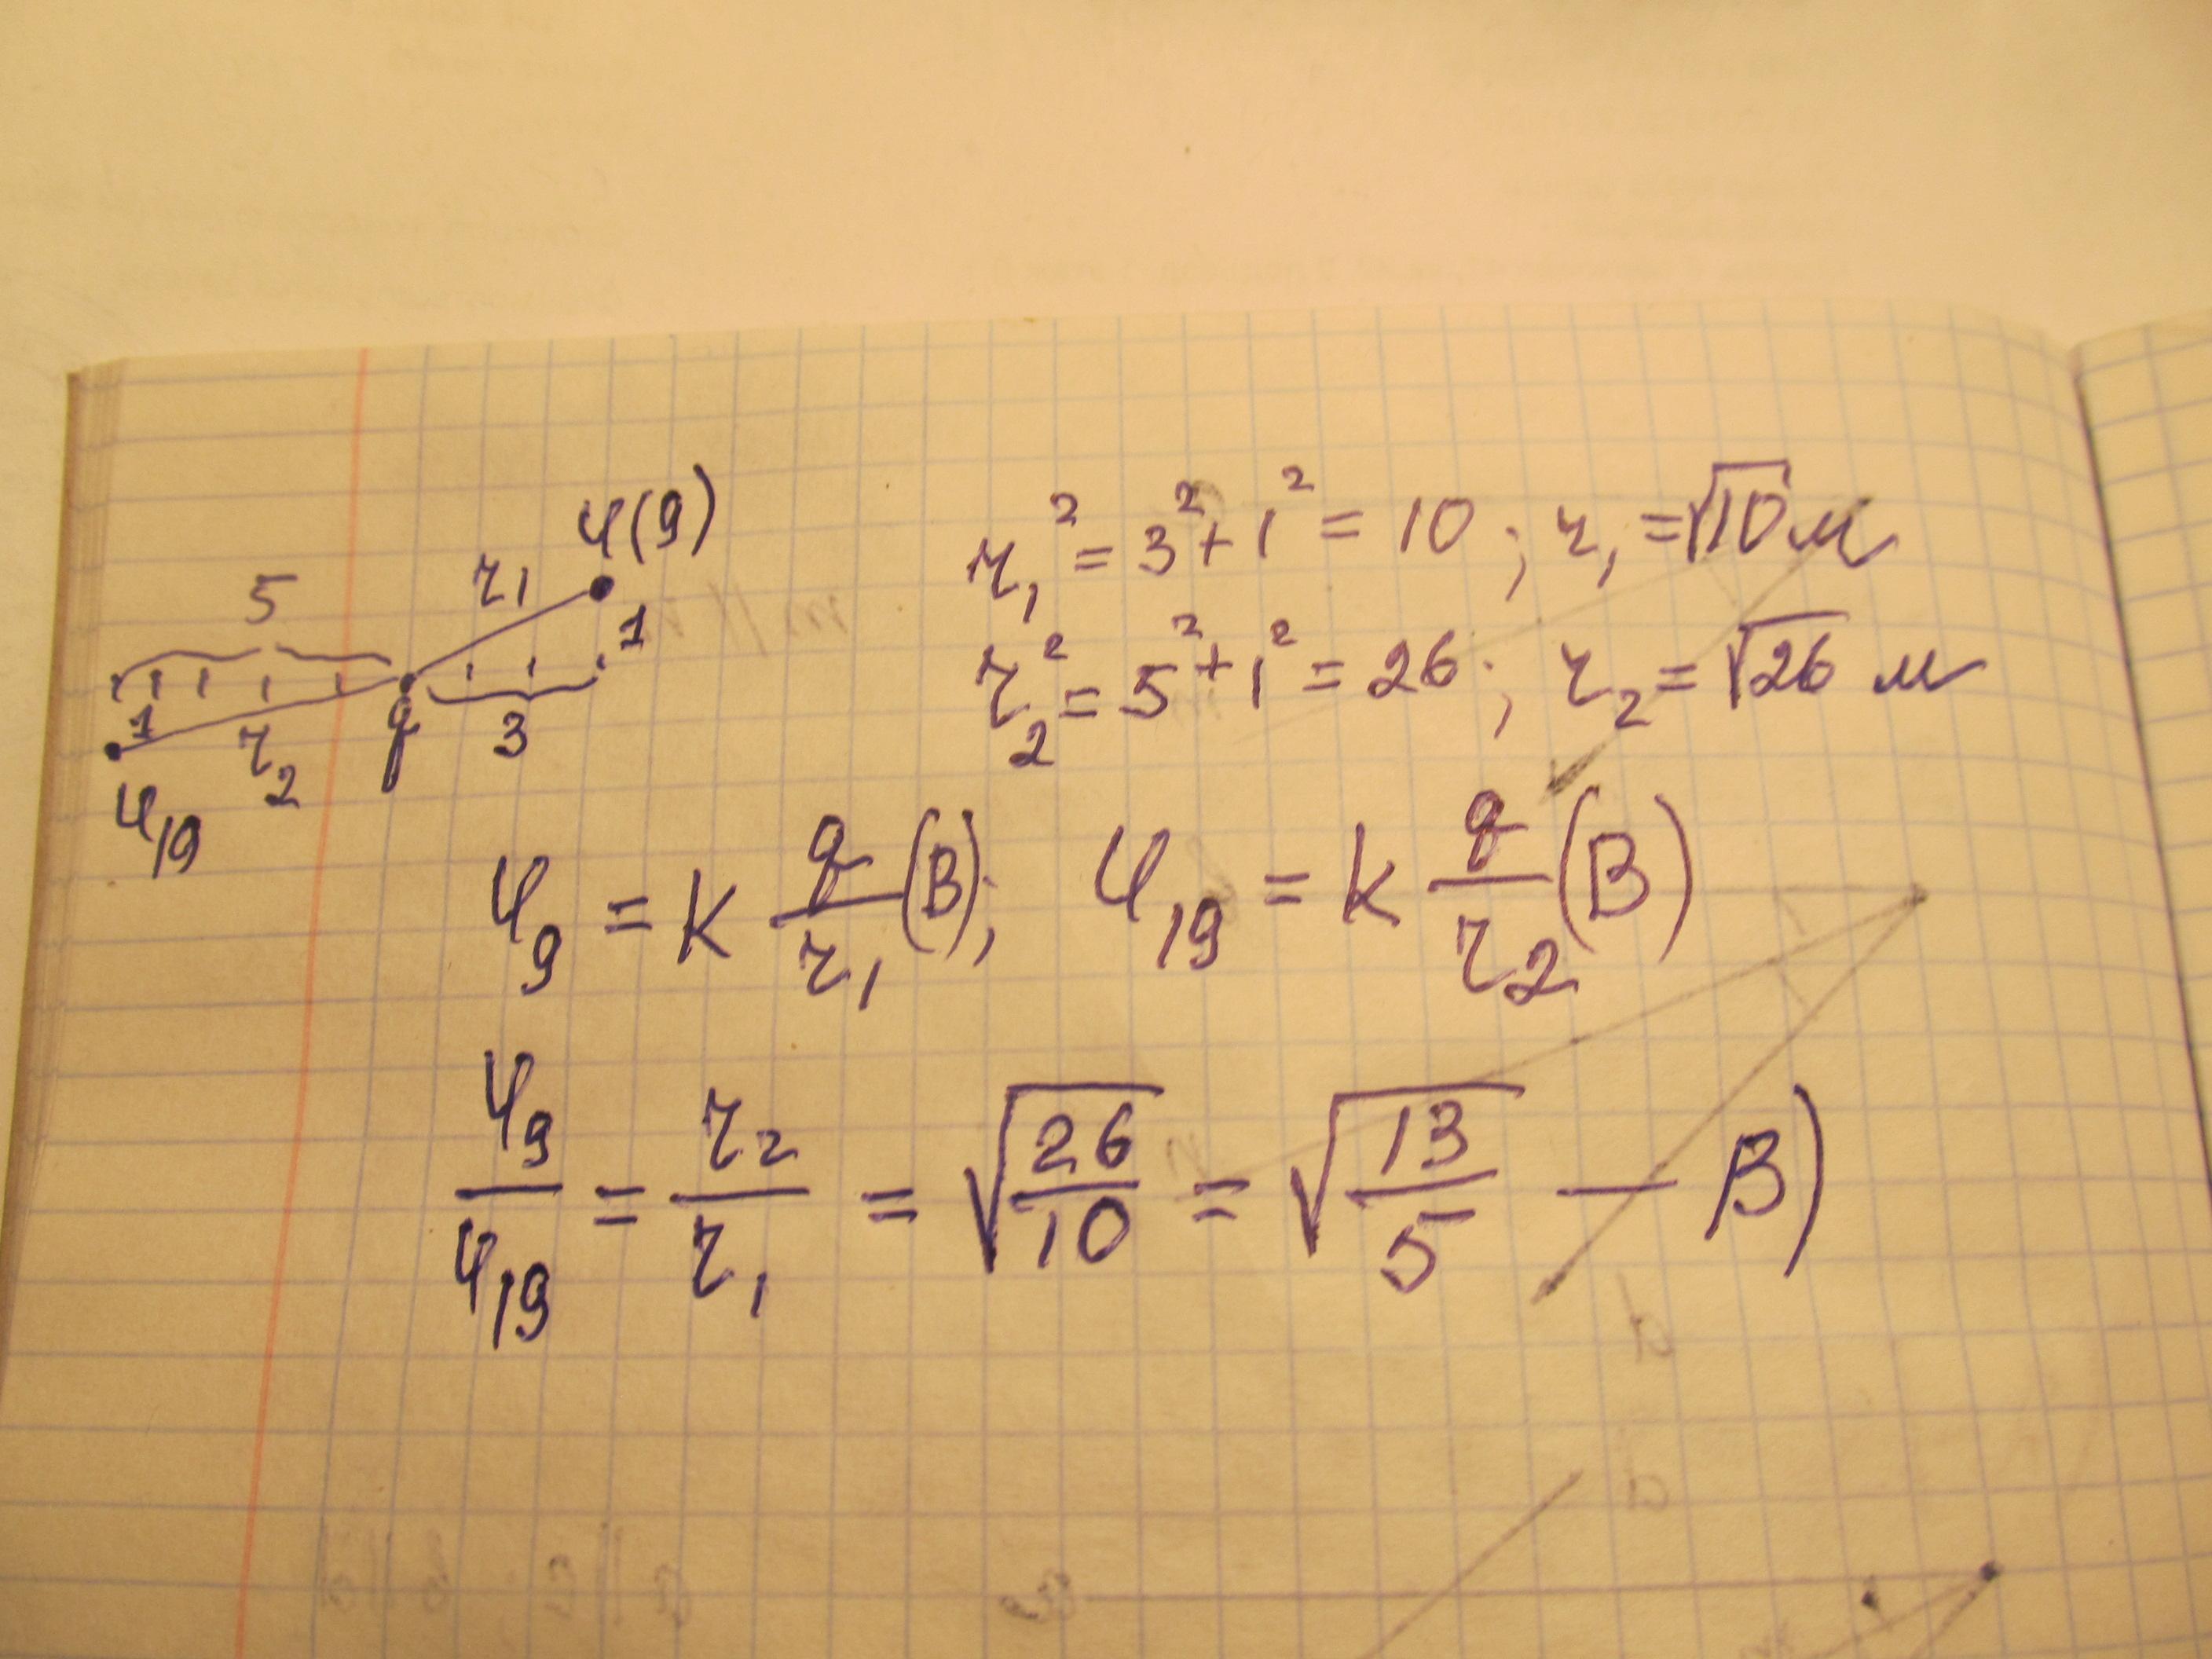 φ(9)
5 r₁ 1
1 r₂ q 3
φ₁₉
r₁² = 3² + 1² = 10; r₁ = √10 м
r₂² = 5² + 1² = 26; r₂ = √26 м
φ₉ = k q/r₁ (В); φ₁₉ = k q/r₂ (В)
φ₉/φ₁₉ = r₂/r₁ = √(26/10) = √(13/5) — В)